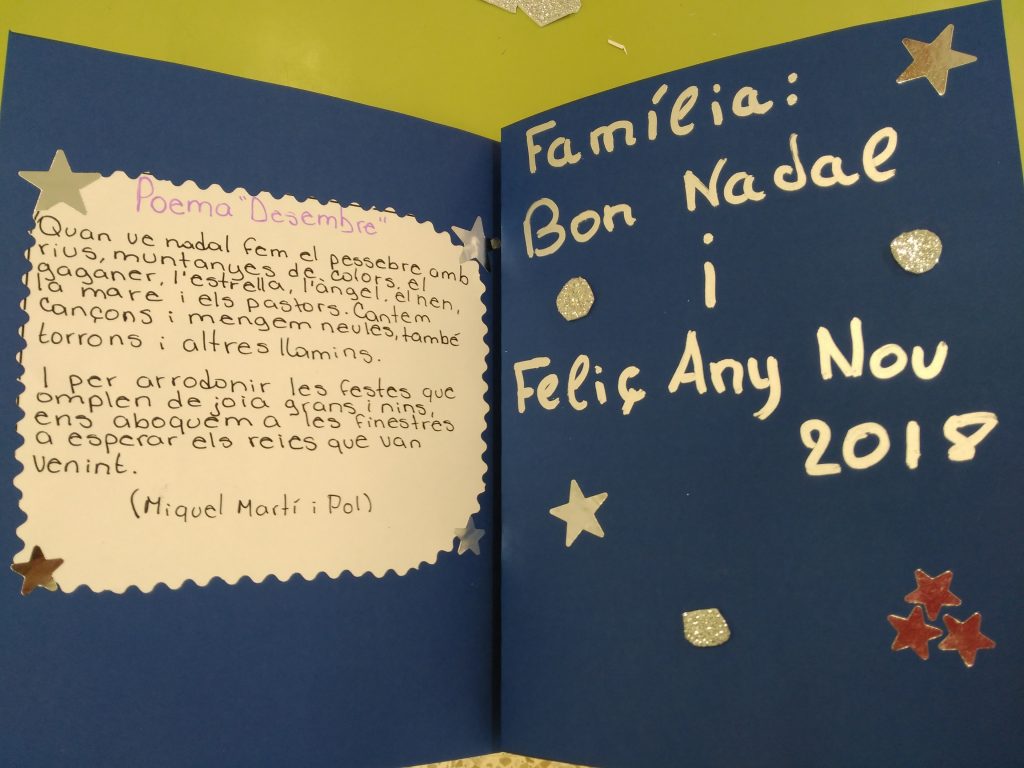 Poema "Desembre"
Quan ve nadal fem el pessebre amb
rius, muntanyes de colors, el
gaganer, l'estrella, l'àngel, el nen,
la mare i els pastors. Cantem
cançons i mengem neules, també
torrons i altres llamins.
I per arrodonir les festes que
omplen de joia grans i nins,
ens aboquem a les finestres
a esperar els reies que van
venint.
(Miquel Martí i Pol)
Família:
Bon Nadal
i
Feliç Any Nou
2018